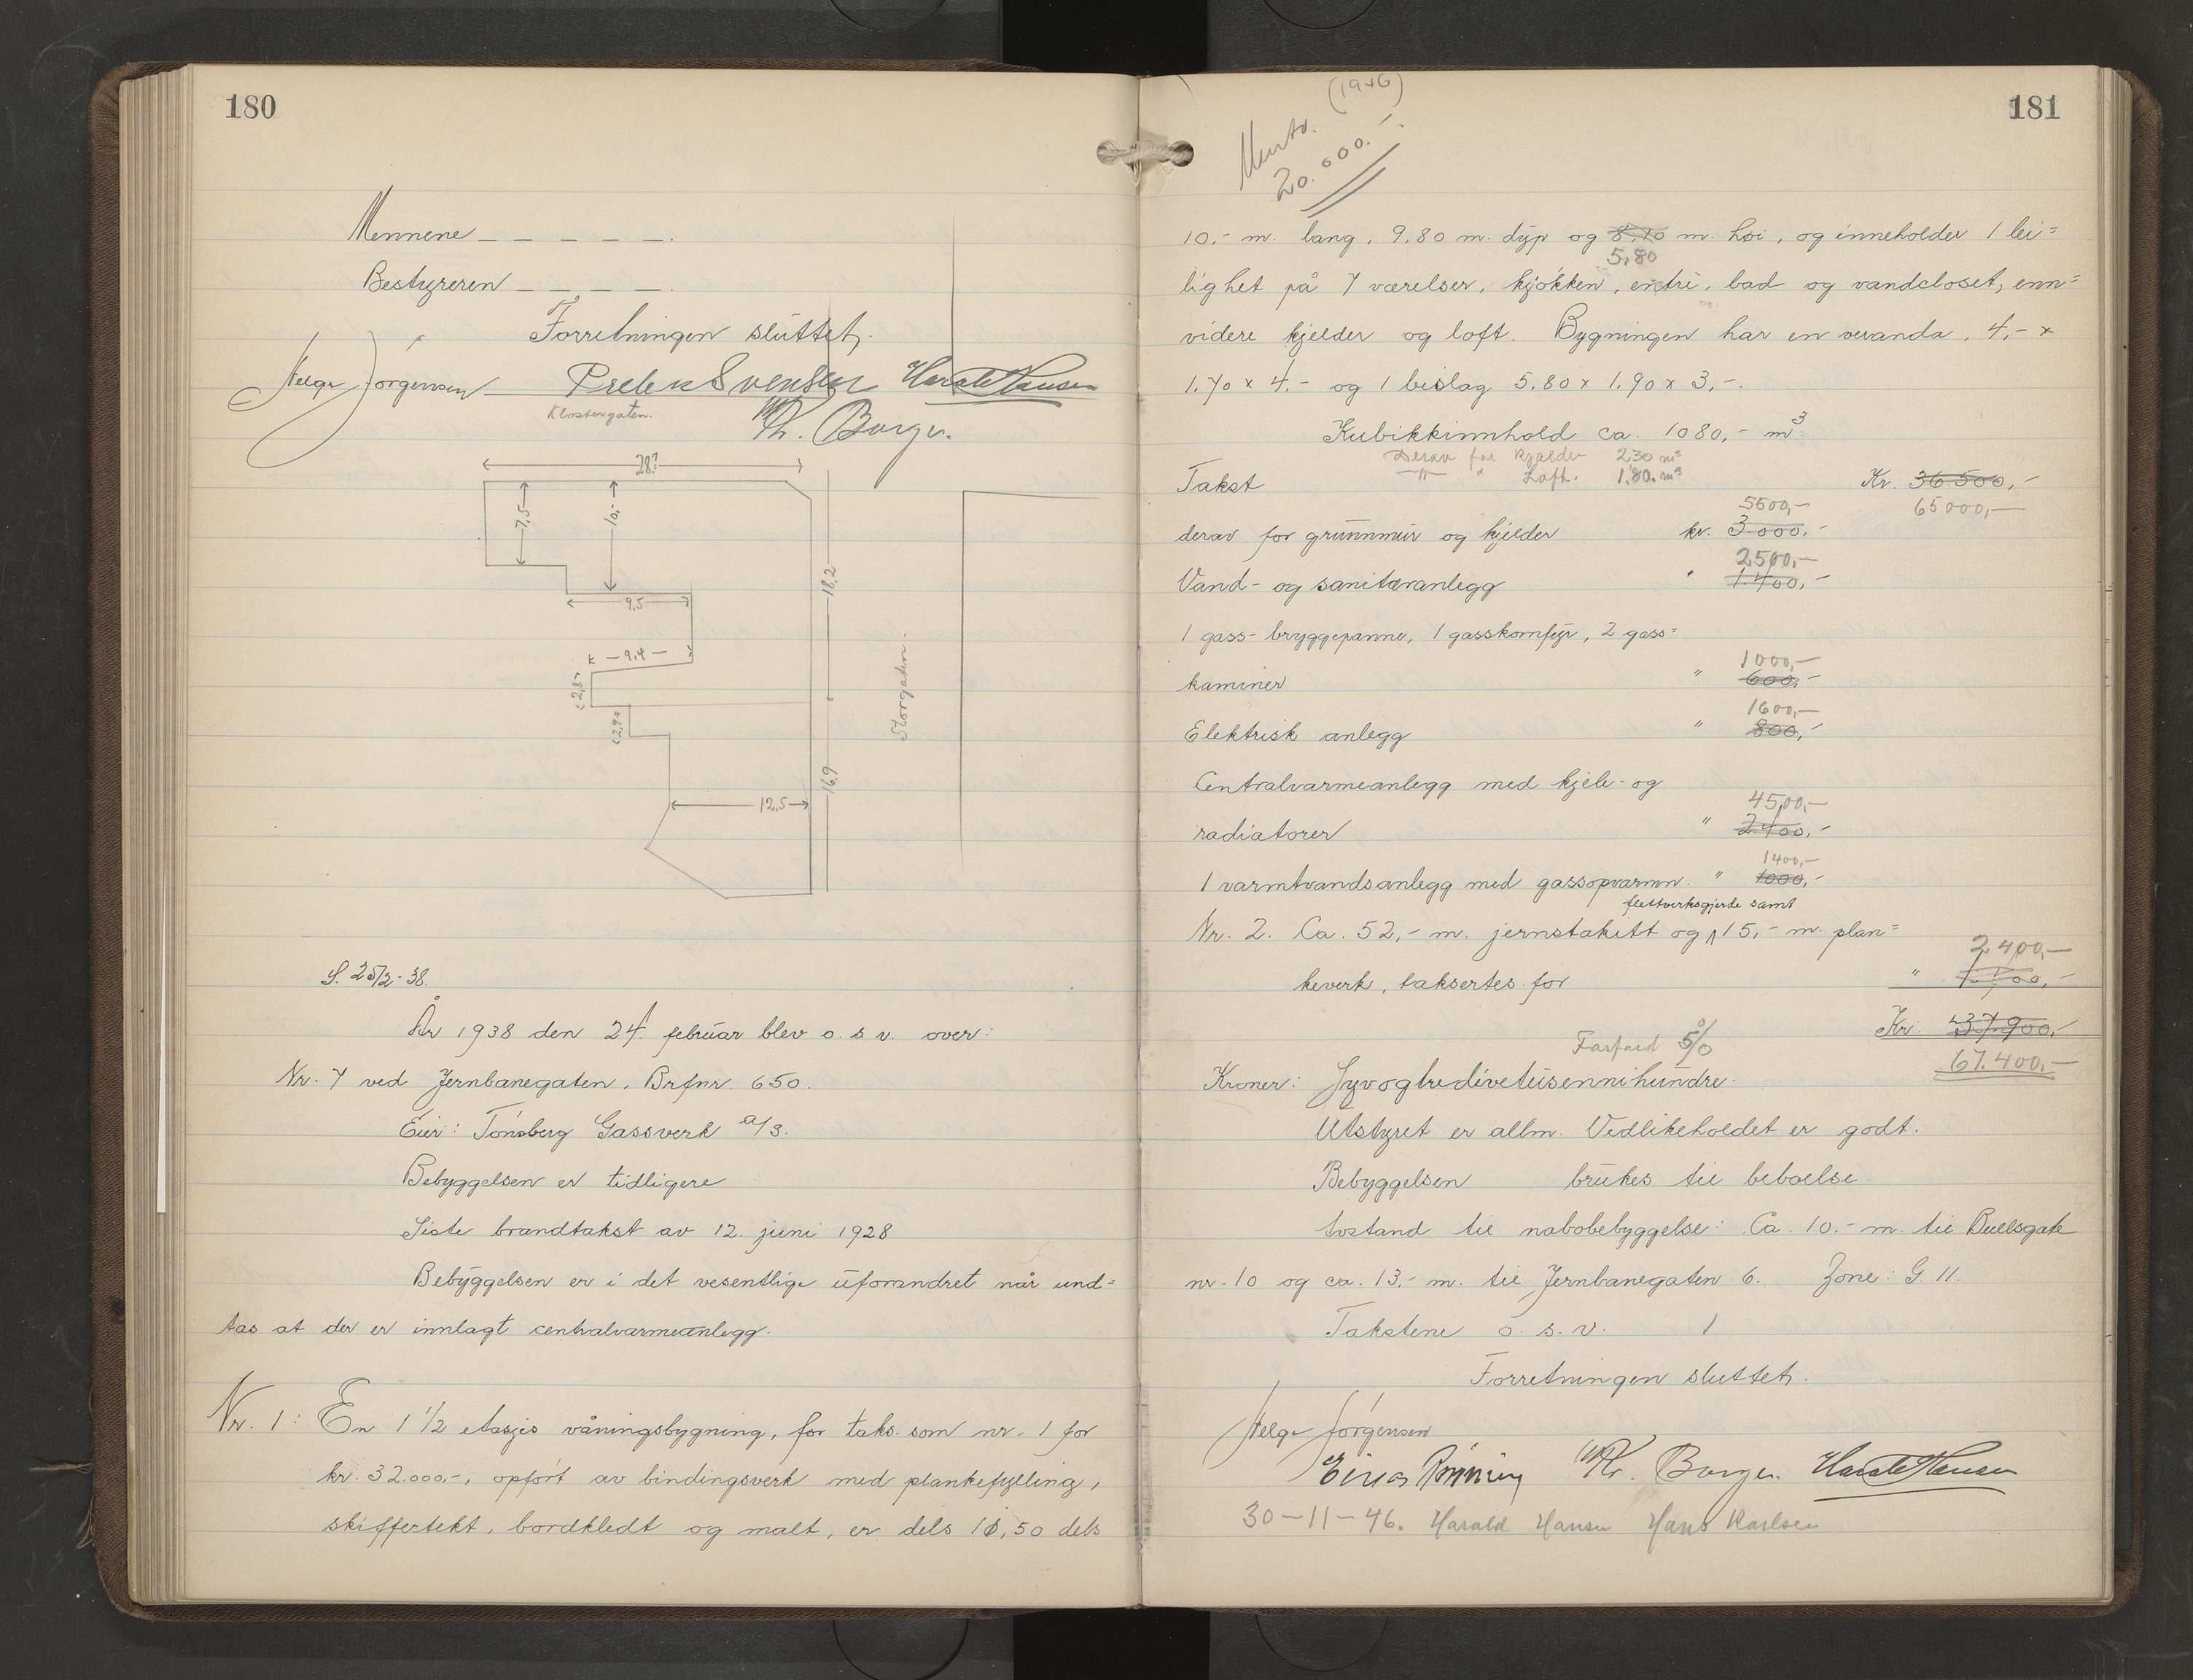 180
Mennene _ _ _ _ _.
Bestyreren _ _ _ _.
Forretningen sluttet.
Helge Jörgensen Harald Hansen
Klostergaten.
Kr. Borge.
28?
7,5
10,-
9,5
18,2
9,4
2,8
2,9
Storgaten.
16,9
12,5
S. 25/2-38.
År 1938 den 24. februar blev o. s. v. over:
Nr. 7 ved Jernbanegaten, Brfnr. 650.
Eier: Tönsberg Gassverk a/s.
Bebyggelsen er tidligere
Siste brandtakst av 12. juni 1928
Bebyggelsen er i det vesentlige uforandret når und=
tas at der er innlagt centralvarmeanlegg.
Nr. 1: En 1 1/2 etasjes våningsbygning, för taks. som nr. 1 for
kr. 32.000,-, opfört av bindingsverk med plankefylling,
skiffertekt, bordkledt og malt, er dels 10,50 dels
181
(1946)
20.000.-
10,- m. lang, 9,80 m. dyp og 8,10 m. höi, og inneholder 1 lei=
5,80
lighet på 7 værelser, kjökken, entri, bad og vandcloset, enn=
videre kjelder og loft. Bygningen har en veranda, 4,- x
1,70 x 4,- og 1 bislag 5,80 x 1,90 x 3,-.
Kubikkinnhold ca. 1080,- m3
Derav for kjelder 230 m3
-"- " Loft. 180 m3
Takst Kr. 36500,-
65000,-
5500,-
derav for grunnmur og kjelder kr. 3.000,-
2500,-
Vand- og sanitæranlegg " 1.400,-
1 gass-bryggepanne, 1 gasskomfyr, 2 gass=
1000,-
kaminer " 600,-
1600,-
Elektrisk anlegg " 800,-
Centralvarmeanlegg med kjele- og
4500,-
radiatorer " 2400,-
1400,-
1 varmtvandsanlegg med gassopvarmn. " 1000,-
flettverksgjerde samt
Nr. 2. Ca. 52,- m. jernstakitt og 15,- m. plan=
2.400,-
keverk, taksertes for " 1.400,-
Kr. 37.900,-
67.400,-
Kroner: Syvogtredivetusennihundre.
Utstyret er allm. Vedlikeholdet er godt.
Bebyggelsen brukes til beboelse.
Avstand til nabobebyggelse: Ca. 10.- m. til Buellsgate
nr. 10 og ca. 13,- m. til Jernbanegaten 6. Zone: G 11.
Takstene o. s. v.
Forretningen sluttet.
Helge Jörgensen
Kr. Borge. Harald Hansen
30-11-46. Harald Hansen Hans Karlsen